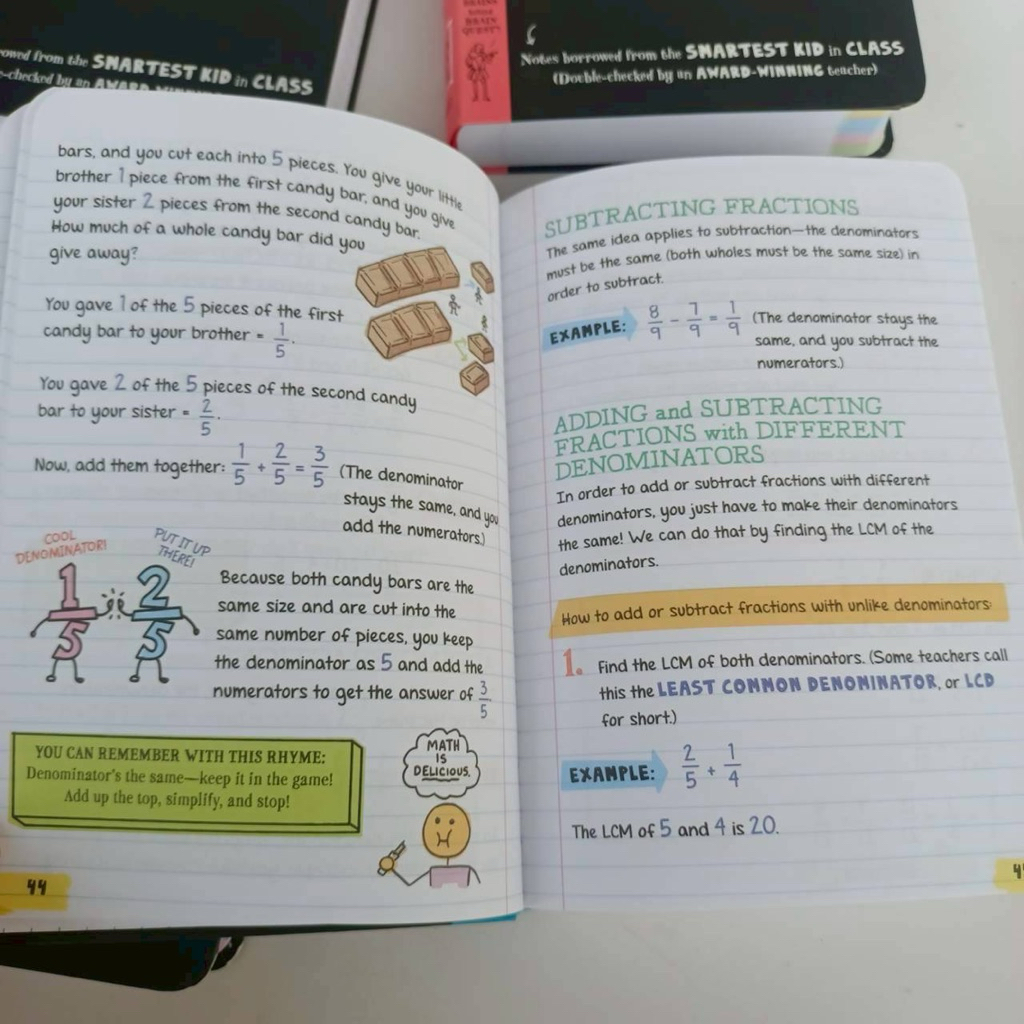 owed from the SMARTEST KID in CLASS
-checked by an AWARD-WINNING
BRAINS
BRAIN
QUEST
Notes borrowed from the SMARTEST KID in CLASS
(Double-checked by an AWARD-WINNING teacher)
bars, and you cut each into 5 pieces. You give your little
brother 1 piece from the first candy bar, and you give
your sister 2 pieces from the second candy bar.
How much of a whole candy bar did you
give away?
You gave 1 of the 5 pieces of the first
candy bar to your brother = 1/5.
You gave 2 of the 5 pieces of the second candy
bar to your sister = 2/5.
Now, add them together: 1/5 + 2/5 = 3/5 (The denominator
stays the same, and you
add the numerators.)
COOL
DENOMINATOR!
PUT IT UP
THERE!
1/5
2/5
Because both candy bars are the
same size and are cut into the
same number of pieces, you keep
the denominator as 5 and add the
numerators to get the answer of 3/5
YOU CAN REMEMBER WITH THIS RHYME:
Denominator's the same—keep it in the game!
Add up the top, simplify, and stop!
MATH
IS
DELICIOUS.
44
SUBTRACTING FRACTIONS
The same idea applies to subtraction—the denominators
must be the same (both wholes must be the same size) in
order to subtract.
EXAMPLE: 8/9 - 7/9 = 1/9 (The denominator stays the
same, and you subtract the
numerators.)
ADDING and SUBTRACTING
FRACTIONS with DIFFERENT
DENOMINATORS
In order to add or subtract fractions with different
denominators, you just have to make their denominators
the same! We can do that by finding the LCM of the
denominators.
How to add or subtract fractions with unlike denominators:
1. Find the LCM of both denominators. (Some teachers call
this the LEAST COMMON DENOMINATOR, or LCD
for short.)
EXAMPLE: 2/5 + 1/4
The LCM of 5 and 4 is 20.